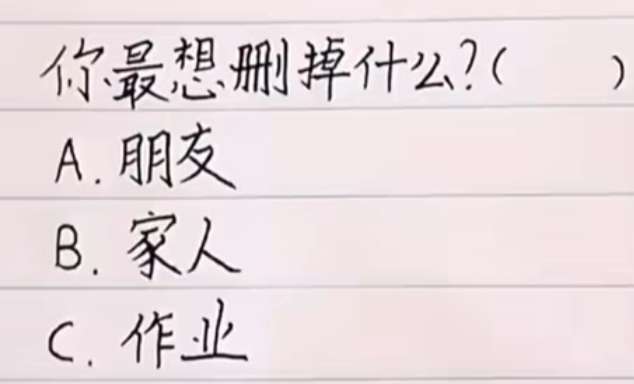 你最想删掉什么?( )
A. 朋友
B. 家人
C. 作业